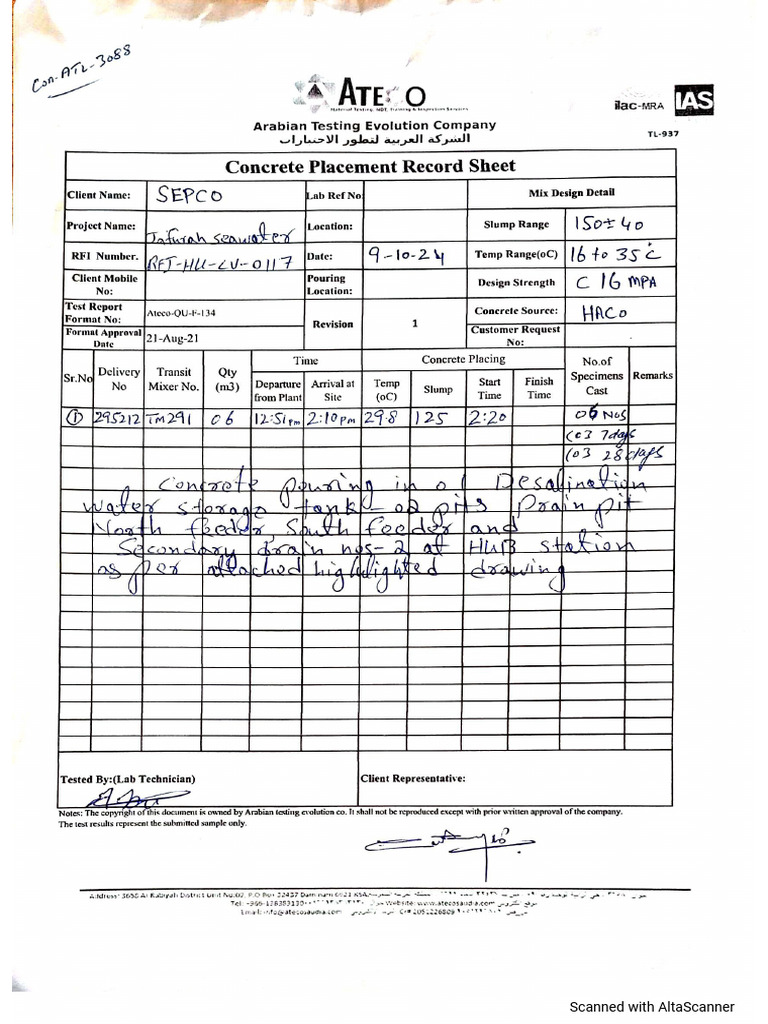 Con-ATL-3088
ATECO
Material Testing, NDT, Training & Inspection Services
ilac-MRA IAS
Arabian Testing Evolution Company
الشركة العربية لتطور الاختبارات
TL-937
Concrete Placement Record Sheet
Client Name: SEPCO Lab Ref No: Mix Design Detail
Project Name: Jafurah seawater Location: Slump Range 150±40
RFI Number. RFI-HU-CV-0117 Date: 9-10-24 Temp Range(oC) 16 to 35°c
Client Mobile No: Pouring Location: Design Strength C 16 MPA
Test Report Format No: Ateco-QU-F-134 Revision 1 Concrete Source: HACO
Format Approval Date 21-Aug-21 Customer Request No:
Sr.No Delivery No Transit Mixer No. Qty (m3) Time Concrete Placing No.of Specimens Cast Remarks
Departure from Plant Arrival at Site Temp (oC) Slump Start Time Finish Time
① 295212 TM291 06 12:51pm 2:10pm 29.8 125 2:20 06 Nos
(03 7days
(03 28days
Concrete pouring in of Desalination
water storage tank-02 pits Drain pit
North feeder, South feeder and
Secondary drain nos-2 at HUB station
as per attached highlighted drawing
Tested By:(Lab Technician) Client Representative:
Notes: The copyright of this document is owned by Arabian testing evolution co. It shall not be reproduced except with prior written approval of the company.
The test results represent the submitted sample only.
Website: www.atecosaudia.com
Email: info@atecosaudia.com
Scanned with AltaScanner